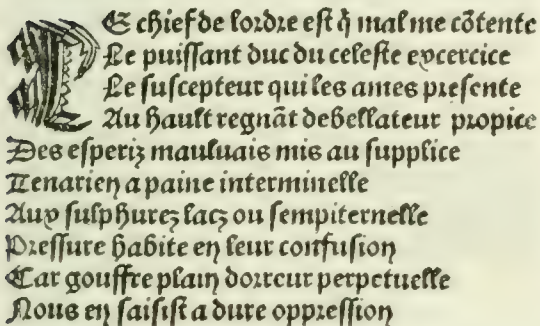 LE chief de lordre est q̃ mal me cõtente
Le puissant duc du celeste excercice
Le suscepteur qui les ames presente
Au hault regnãt debellateur propice
Des esperiz mauluais mis au supplice
Tenarien a paine interminelle
Aux sulphurez lacz ou sempiternelle
Pressure habite en leur confusion
Car gouffre plain dorreur perpetuelle
Nous en saisist a dure oppression